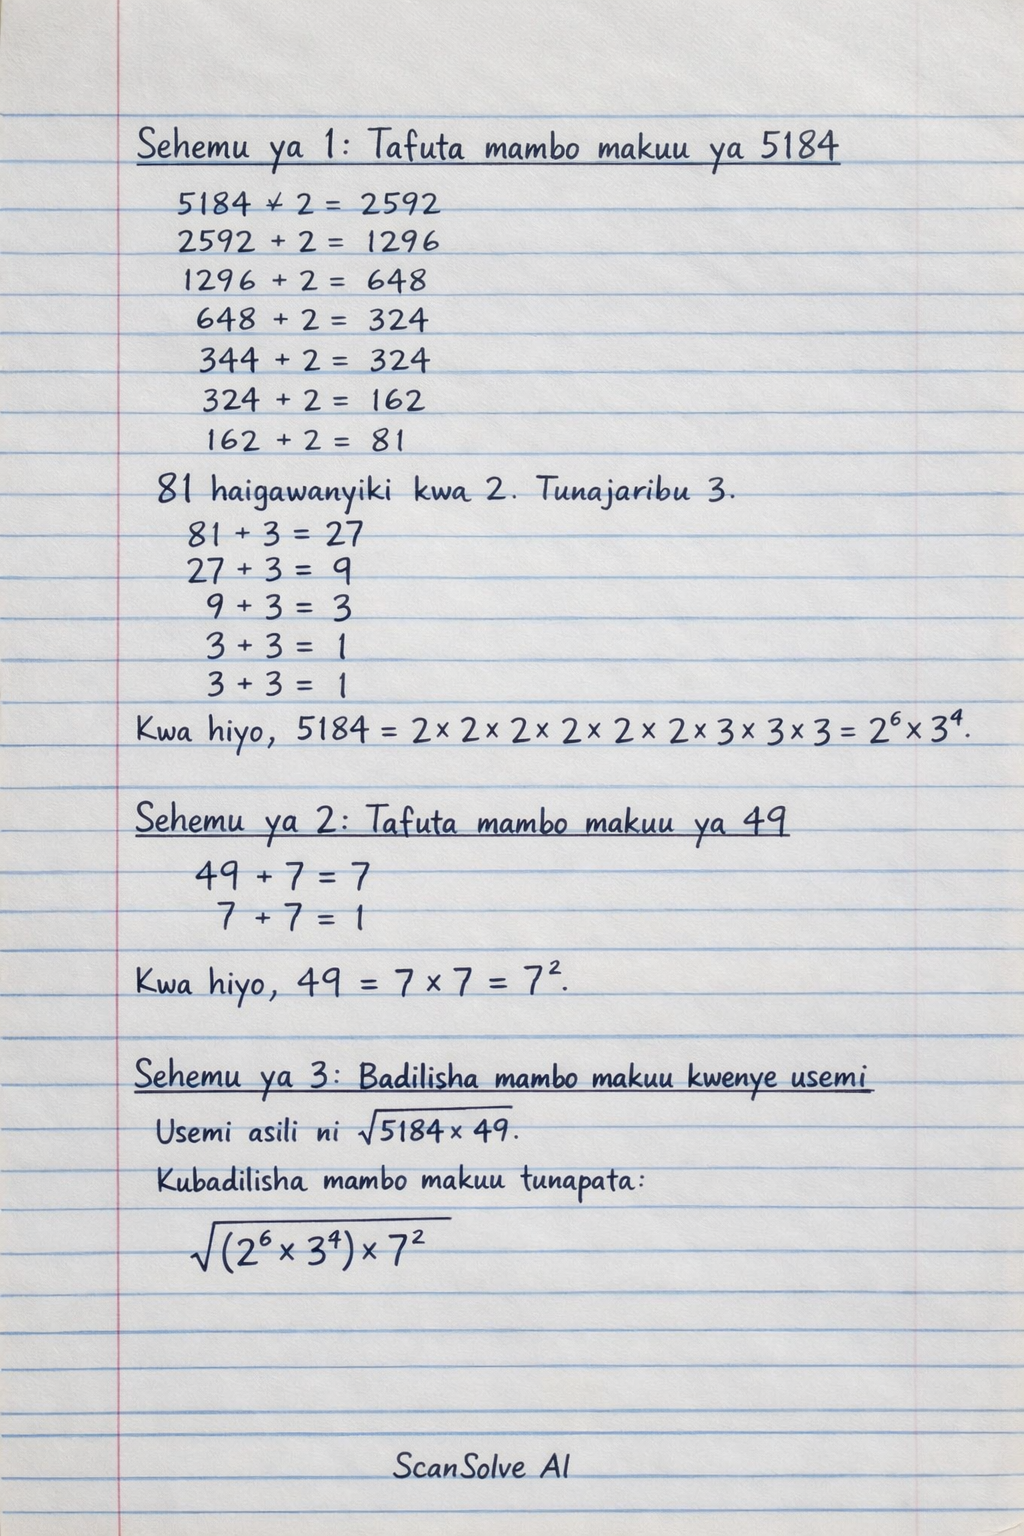 Sehemu ya 1: Tafuta mambo makuu ya 5184
5184 ∗ 2 = 2592
2592 + 2 = 1296
1296 + 2 = 648
648 + 2 = 324
344 + 2 = 324
324 + 2 = 162
162 + 2 = 81
81 haigawanyiki kwa 2. Tunajaribu 3.
81 + 3 = 27
27 + 3 = 9
9 + 3 = 3
3 + 3 = 1
3 + 3 = 1
Kwa hiyo, 5184 = 2 × 2 × 2 × 2 × 2 × 2 × 3 × 3 × 3 = 2⁶ × 3⁴.
Sehemu ya 2: Tafuta mambo makuu ya 49
49 + 7 = 7
7 + 7 = 1
Kwa hiyo, 49 = 7 × 7 = 7².
Sehemu ya 3: Badilisha mambo makuu kwenye usemi
Usemi asili ni √5184 × 49.
Kubadilisha mambo makuu tunapata:
√(2⁶ × 3⁴) × 7²
ScanSolve AI